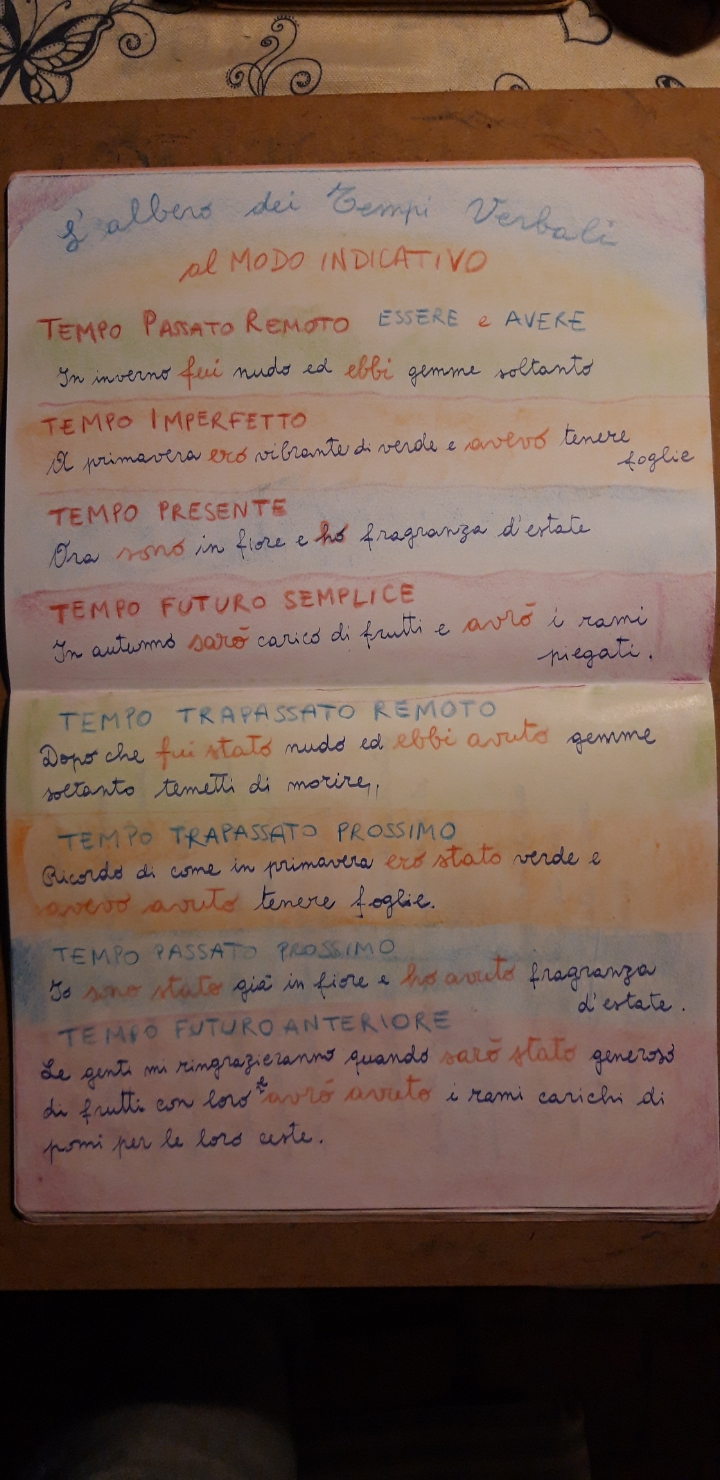 L'albero dei Tempi Verbali
al MODO INDICATIVO
TEMPO PASSATO REMOTO ESSERE e AVERE
In inverno fui nudo ed ebbi gemme soltanto
TEMPO IMPERFETTO
A primavera ero vibrante di verde e avevo tenere
foglie
TEMPO PRESENTE
Ora sono in fiore e ho fragranza d'estate
TEMPO FUTURO SEMPLICE
In autunno sarò carico di frutti e avrò i rami
piegati.
TEMPO TRAPASSATO REMOTO
Dopo che fui stato nudo ed ebbi avuto gemme
soltanto temetti di morire,
TEMPO TRAPASSATO PROSSIMO
Ricordo di come in primavera ero stato verde e
avevo avuto tenere foglie.
TEMPO PASSATO PROSSIMO
Io sono stato già in fiore e ho avuto fragranza
d'estate.
TEMPO FUTURO ANTERIORE
Le genti mi ringrazieranno quando sarò stato generoso
di frutti con loro e avrò avuto i rami carichi di
pomi per le loro ceste.